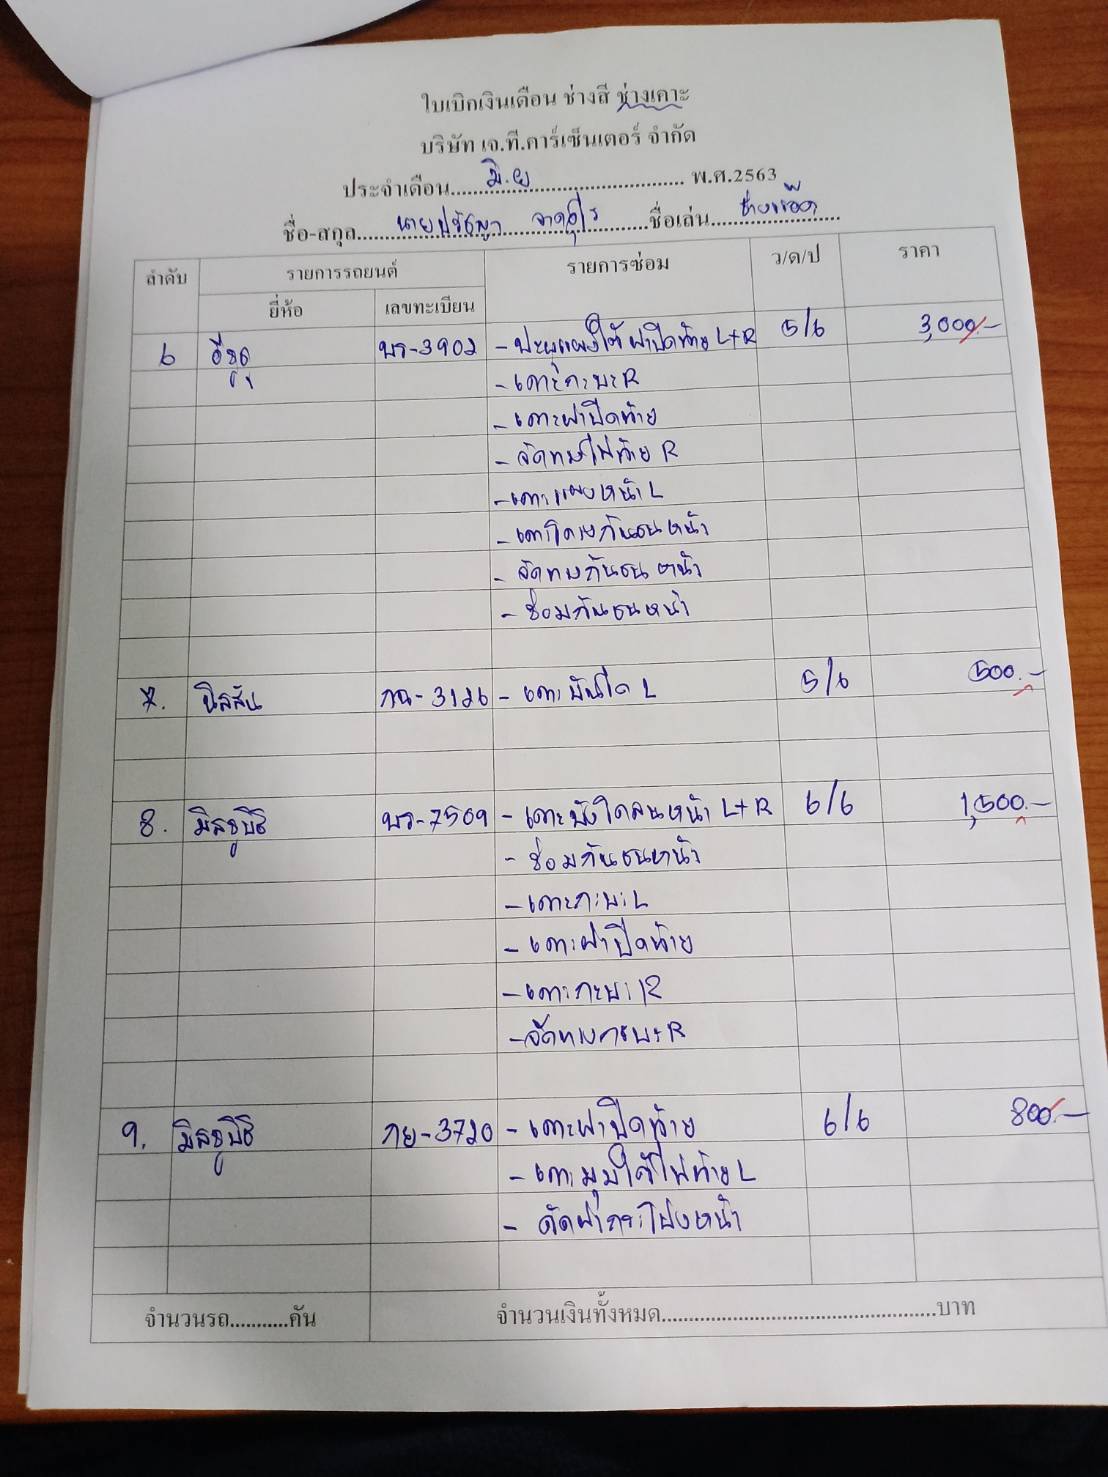 ใบเบิกเงินเดือน ช่างสี ช่างเคาะ
บริษัท เจ.ที.คาร์เซ็นเตอร์ จำกัด
ประจำเดือน....มิ.ย.... พ.ศ.2563
ชื่อ-สกุล....นายปรัชญา....ชื่อเล่น....
ลำดับ รายการรถยนต์ รายการซ่อม ว/ด/ป ราคา
ยี่ห้อ เลขทะเบียน
6 อีซูซุ บร-3902 - ปะผุแผงใต้ฝาปิดท้าย L+R 5/6 3,000.-
- เคาะกะบะ R
- เคาะฝาปิดท้าย
- จัดทรงไฟท้าย R
- เคาะแผงหน้า L
- เคาะโครงกันชนหน้า
- จัดทรงกันชนหน้า
- ซ่อมกันชนหน้า
7. นิสสัน กฉ-3126 - เคาะบันได L 5/6 500.-
8. มิตซูบิชิ บว-7569 - เคาะบังโคลนหน้า L+R 6/6 1,500.-
- ซ่อมกันชนหน้า
- เคาะกะบะ L
- เคาะฝาปิดท้าย
- เคาะกะบะ R
- จัดทรงกระบะ R
9. มิตซูบิชิ กย-3720 - เคาะฝาปิดท้าย 6/6 800.-
- เคาะมุมใต้ไฟท้าย L
- ดัดฝากระโปรงหน้า
จำนวนรถ...........คัน จำนวนเงินทั้งหมด..............................................บาท